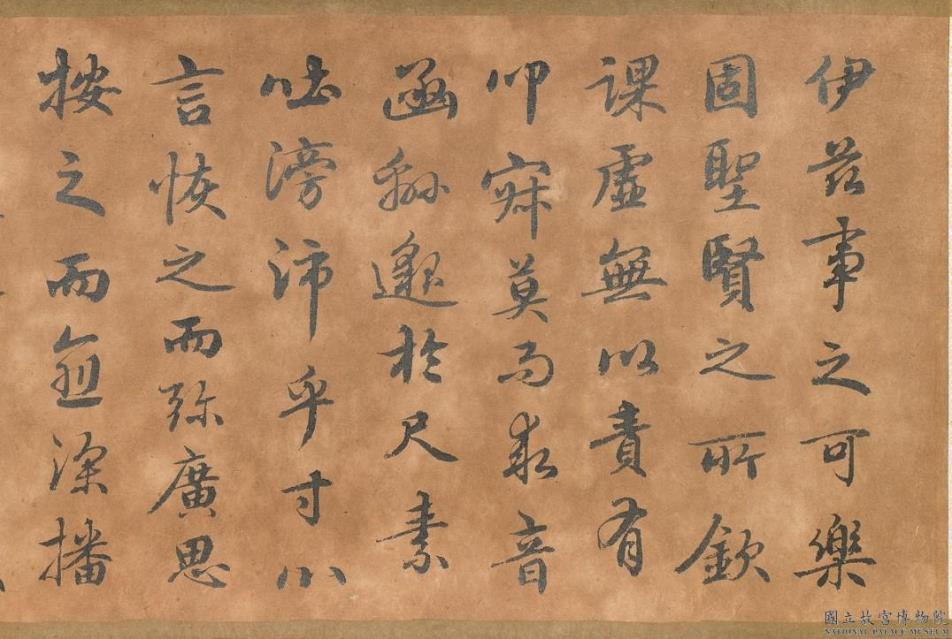 伊茲事之可樂
固聖賢之所欽
課虛無以責有
叩寂莫而求音
函緜邈於尺素
吐滂沛乎寸心
言恢之而彌廣思
按之而愈深播
國立故宮博物院
NATIONAL PALACE MUSEUM